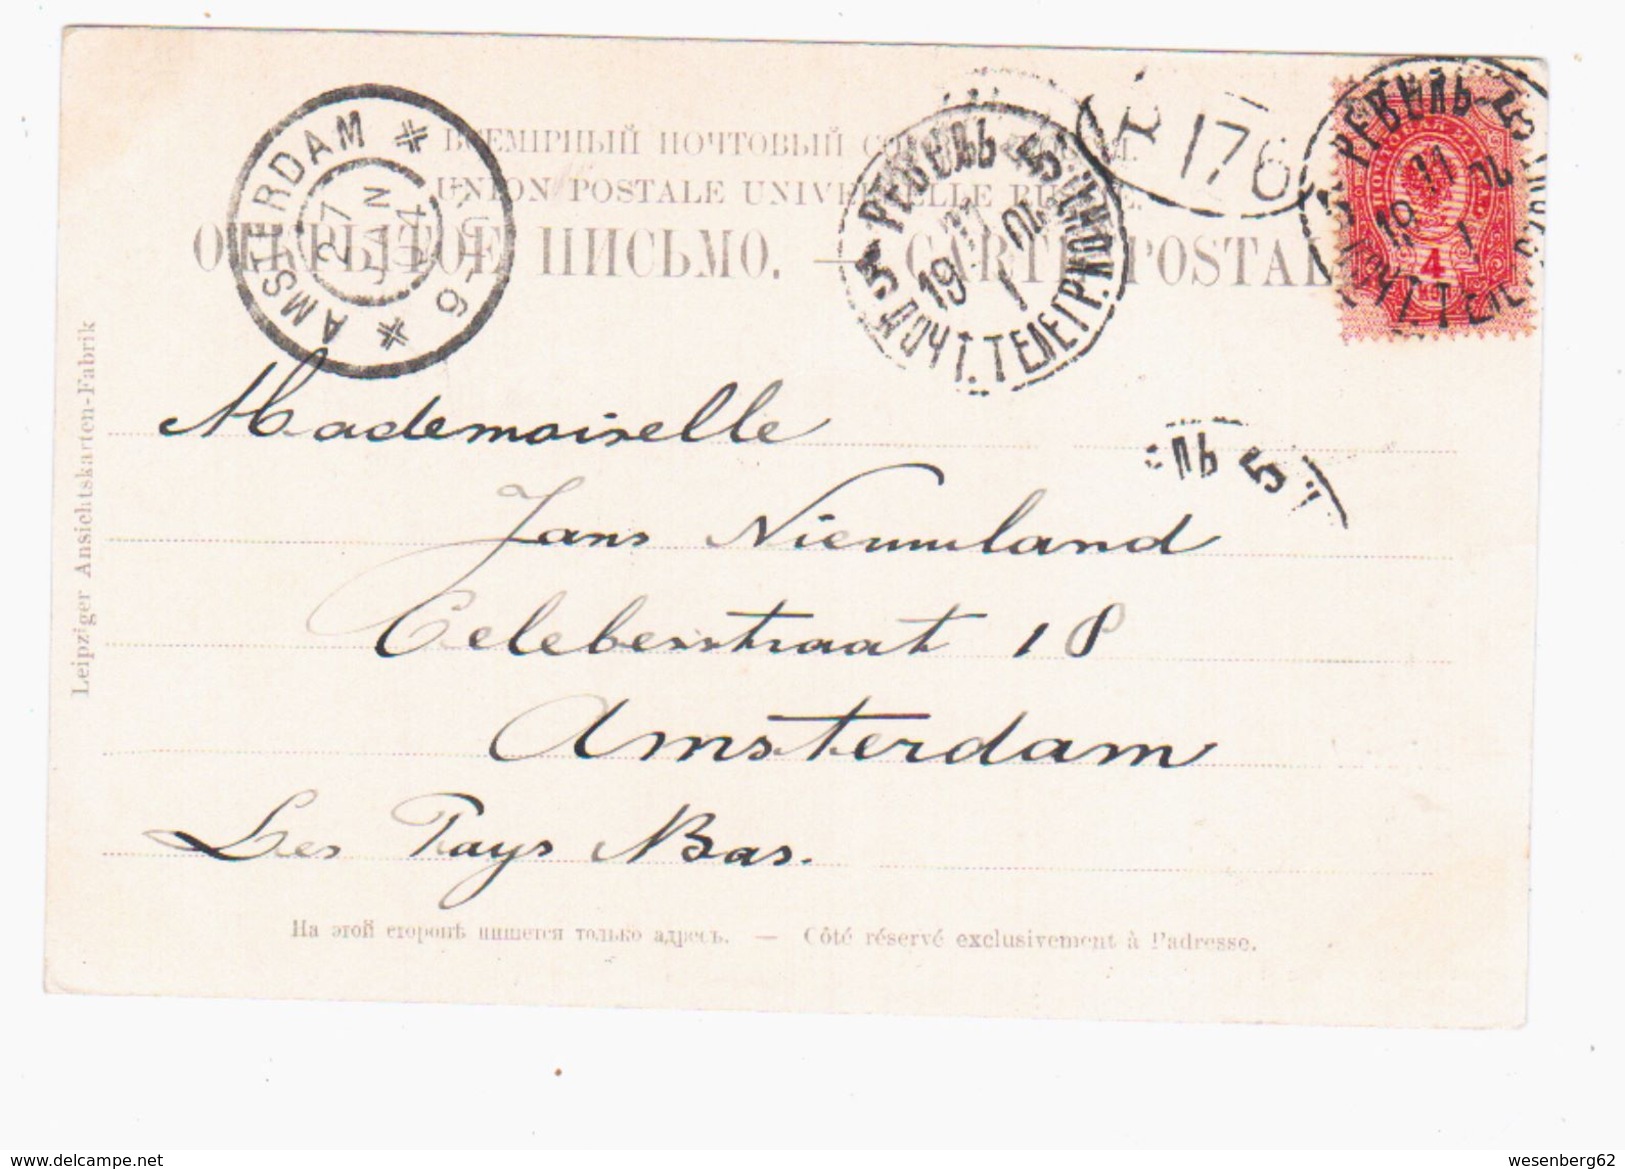 ВСЕМІРНЫЙ ПОЧТОВЫЙ
UNION POSTALE UNIVERSELLE RUSSIE.
ОТКРЫТОЕ ПИСЬМО. — CARTE POSTALE
AMSTERDAM
27 JAN 04
РЕВЕЛЬ 5
ПОЧТ. ТЕЛЕГР. КОН
19 04
1
176
РЕВЕЛЬ 5
ПОЧТ. ТЕЛЕ
4
ЛЬ 5
Mademoiselle
Jans Nieuwland
Celebesstraat 18
Amsterdam
Les Pays Bas.
Leipziger Ansichtskarten-Fabrik
На этой сторонѣ пишется только адресъ. — Côté réservé exclusivement à l'adresse.
www.delcampe.net
wesenberg62